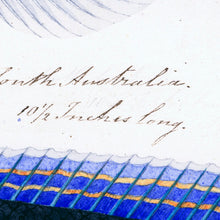 South Australia.
10½ Inches long.